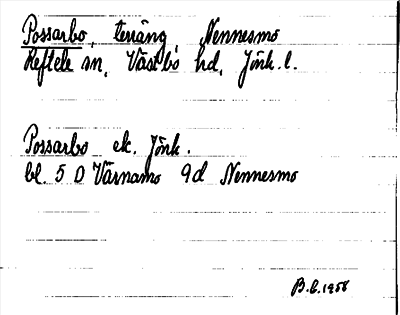 Possarbo, terräng, Nennesmo
Reftele sn, Västbo hd, Jönk. l.
Possarbo ek. Jönk.
bl. 5 D Värnamo 9d Nennesmo
B.E. 1958